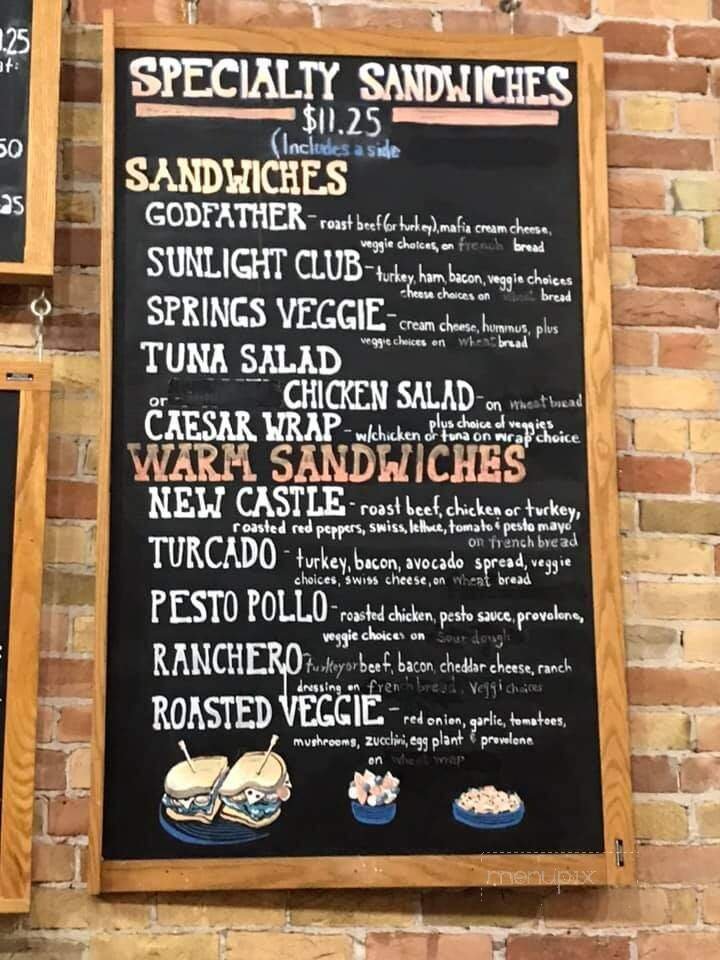 .25
50
25
SPECIALTY SANDWICHES
$11.25
(Includes a side
SANDWICHES
GODFATHER - roast beef (or turkey), mafia cream cheese,
veggie choices, on french bread
SUNLIGHT CLUB - turkey, ham, bacon, veggie choices
cheese choices on bread
SPRINGS VEGGIE - cream cheese, hummus, plus
veggie choices on wheat bread
TUNA SALAD
or CHICKEN SALAD - on wheat bread
plus choice of veggies
CAESAR WRAP - w/chicken or tuna on wrap choice
WARM SANDWICHES
NEW CASTLE - roast beef, chicken or turkey,
roasted red peppers, swiss, lettuce, tomato & pesto mayo
on french bread
TURCADO - turkey, bacon, avocado spread, veggie
choices, swiss cheese, on wheat bread
PESTO POLLO - roasted chicken, pesto sauce, provolone,
veggie choices on Sour dough
RANCHERO turkey or beef, bacon, cheddar cheese, ranch
dressing on french bread, Veggi choices
ROASTED VEGGIE - red onion, garlic, tomatoes,
mushrooms, zucchini, egg plant & provolone
on wheat wrap
menupix